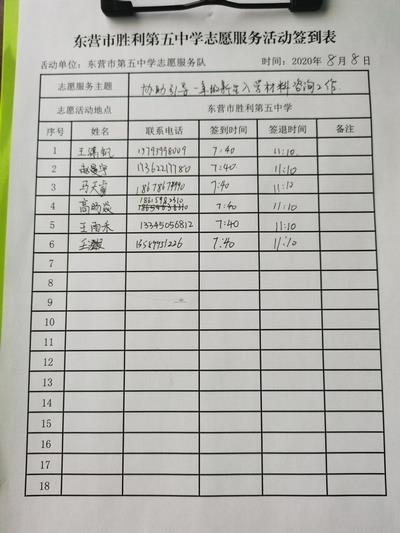 东营市胜利第五中学志愿服务活动签到表
活动单位：东营市第五中学志愿服务队 时间：2020年8月8日
志愿服务主题 协助引导一年的新生入学材料咨询工作
志愿活动地点 东营市胜利第五中学
序号 姓名 联系电话 签到时间 签退时间 备注
1 7:40 11:10
2 7:40 11:10
3 马天睿 7:40 11:10
4 7:40 11:10
5 王雨禾 13345056812 7:40 11:10
6 7:40 11:10
7
8
9
10
11
12
13
14
15
16
17
18